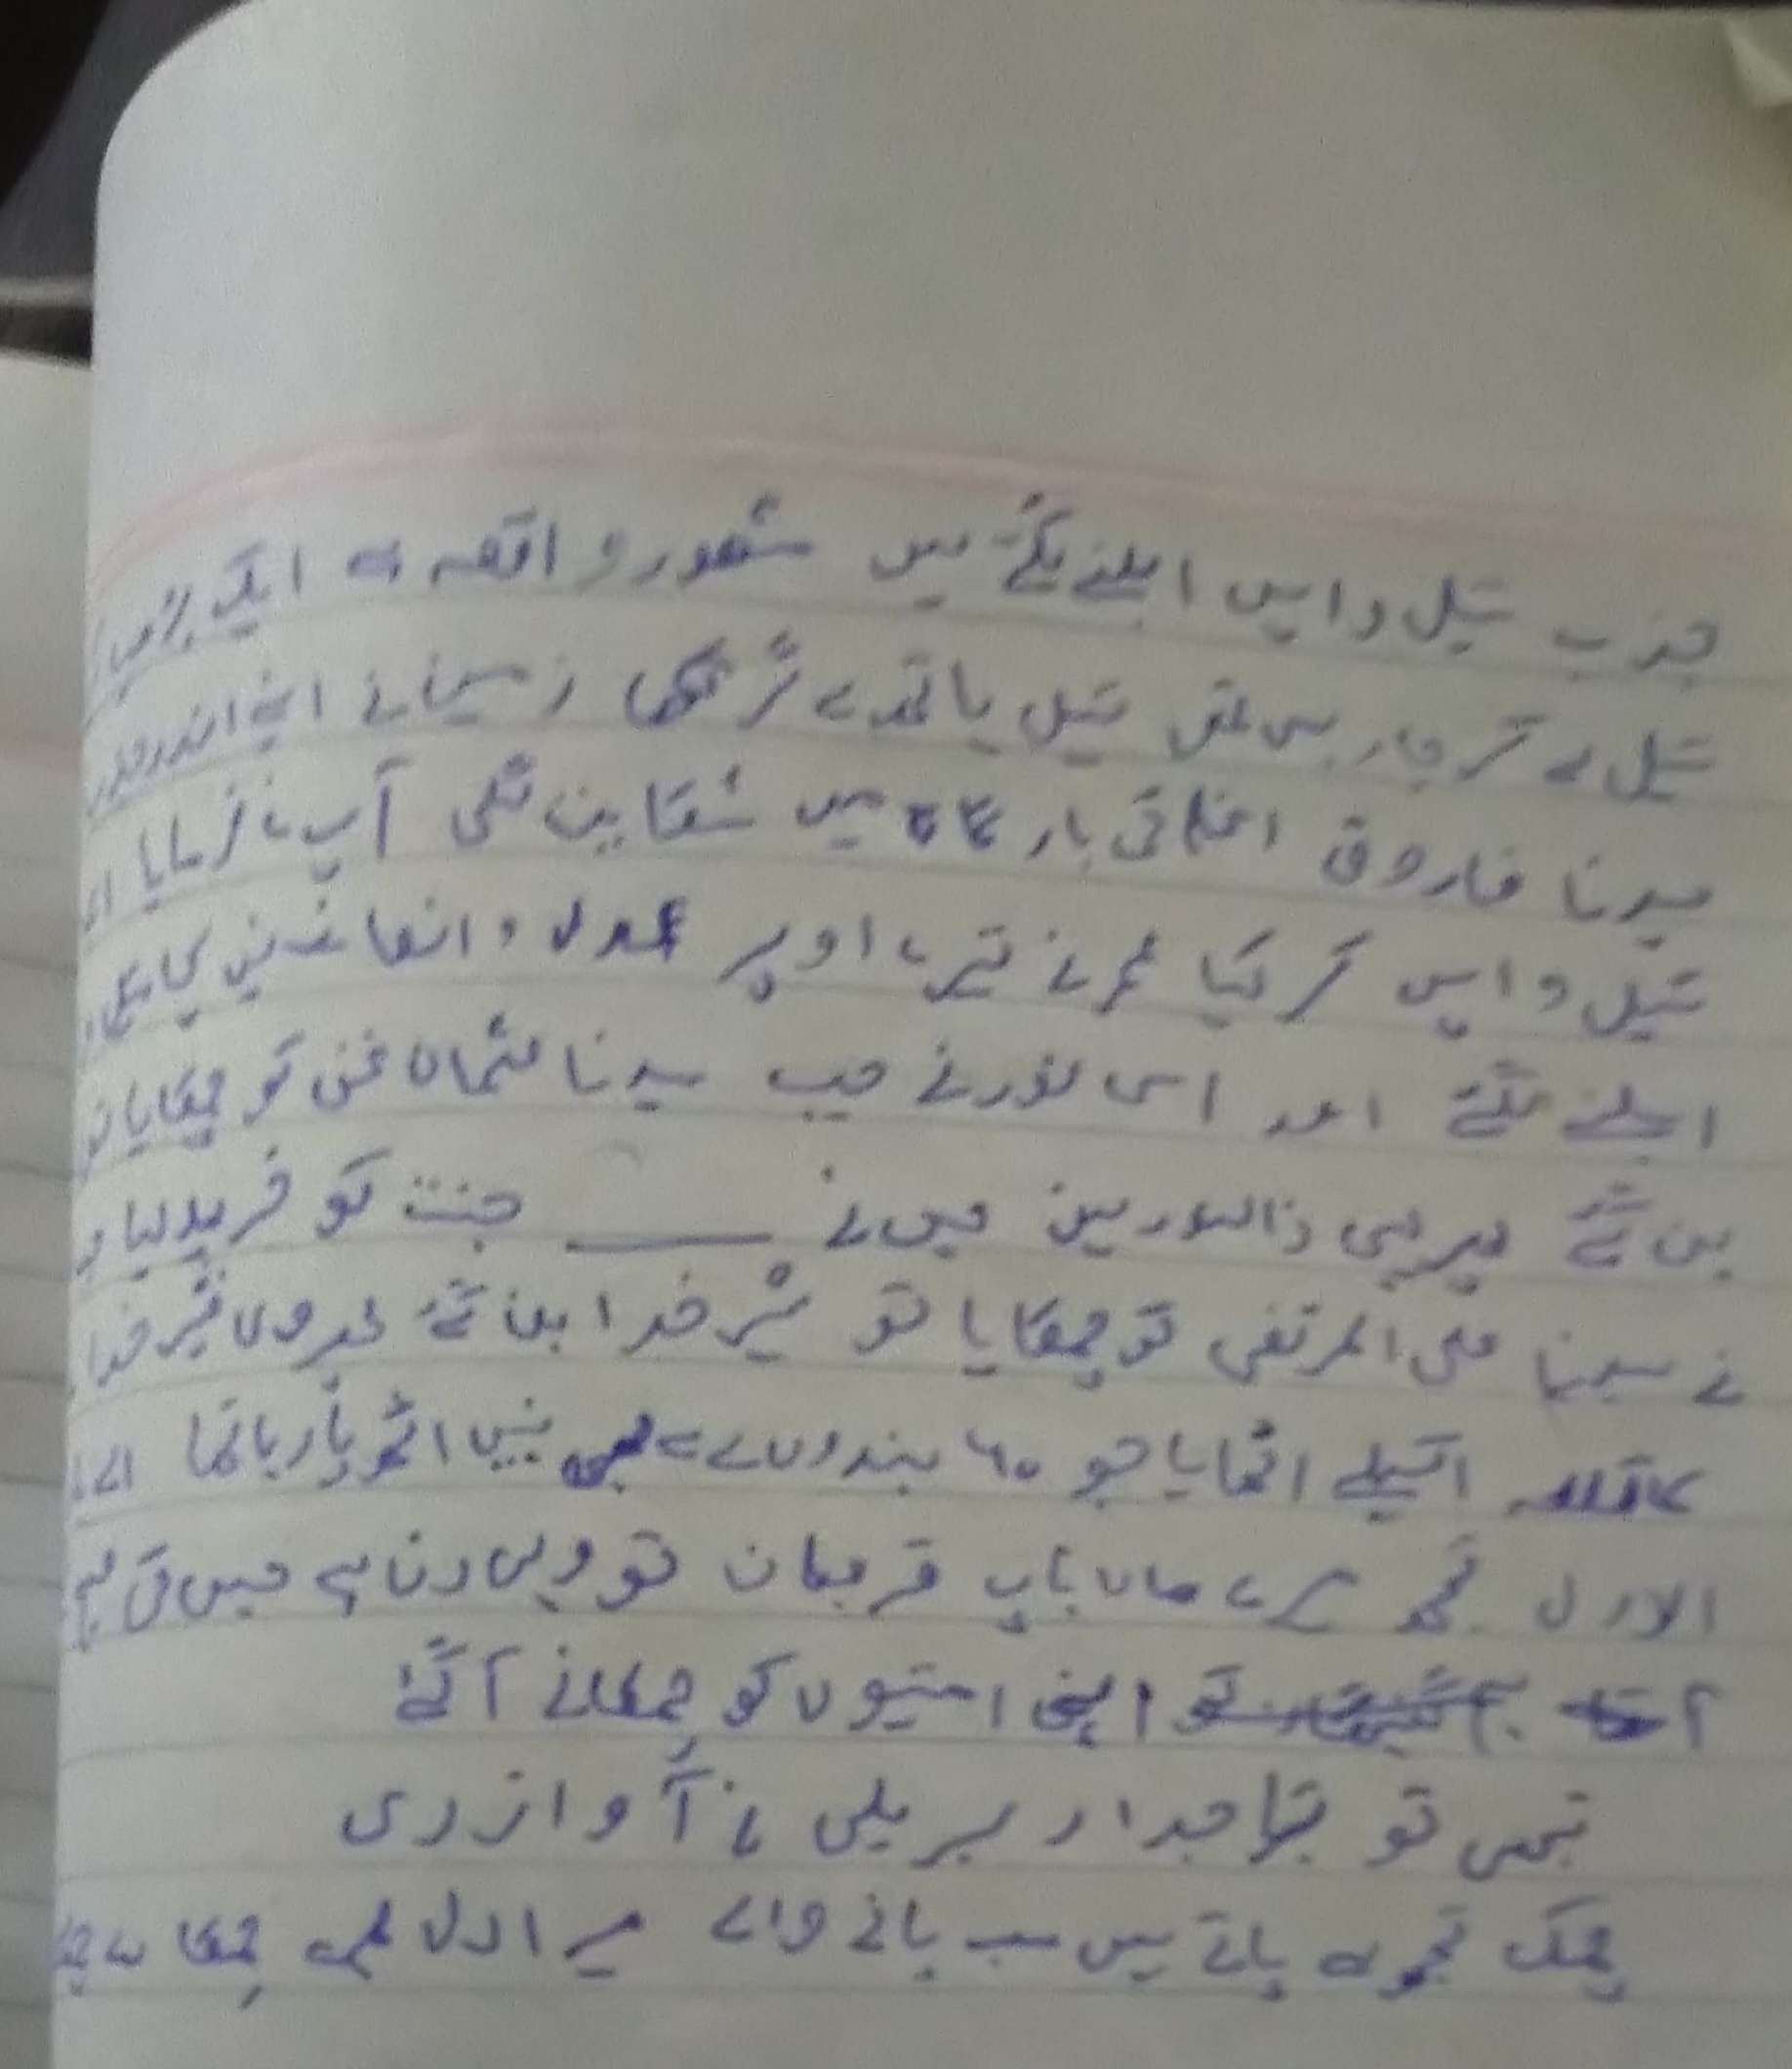 جذب تیل واپس ابلنے لگتے ہیں مشہور واقعہ ہے ایک
تیل لے کر جا رہی تھی تیل ہاتھ سے گر گیا زمین نے اپنے اندر جذب
سیدنا فاروق اعظم کی بارگاہ میں شکایت لگی آپ نے فرمایا اے
تیل واپس کر کیا عمر نے تیرے اوپر عدل و انصاف نہیں کیا
ابلنے لگتے اور اسی نور نے جب سیدنا عثمان غنی کو چمکایا
بن گئے پھر یہی ذالنورین میں نے ـــــــ جنت کو خرید لیا
نے سیدنا علی المرتضی کو چمکایا تو شیر خدا بن گئے پھر وہی شیر خدا
اکیلے اٹھایا جو ۶۰ بندوں سے بھی نہیں اٹھ پا رہا تھا اے
الاول تجھ پے میرے ماں باپ قربان تو وہی دن ہے جس
اپنی امتیوں کو چمکانے آ گئے
تبھی تو تاجدار بریلی نے آواز دی
چمک تجھ سے پاتے ہیں سب پانے والے میرا دل بھی چمکا دے